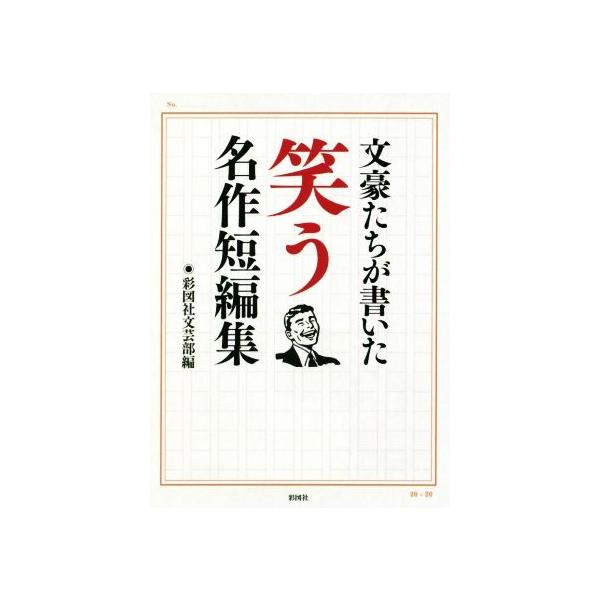 No.
文豪たちが書いた
笑う
名作短編集
◉彩図社文芸部編
彩図社
20×20